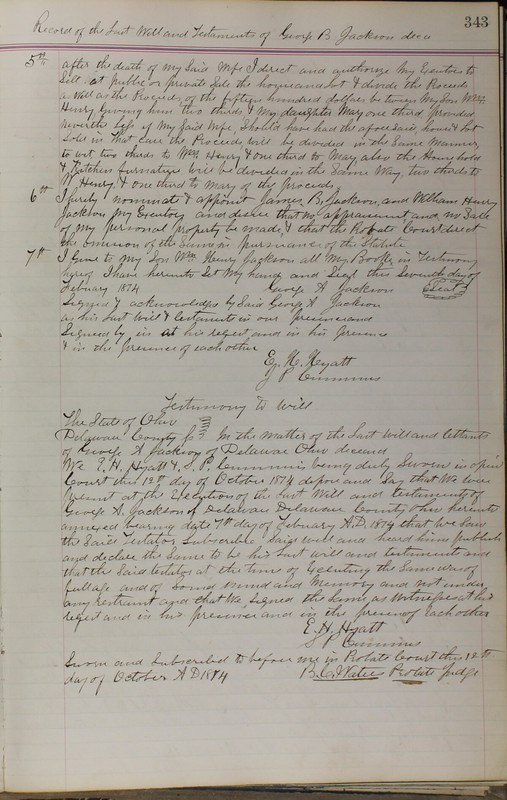 343
Record of the Last Will and Testaments of George B Jackson decd
5th after the death of my Said Wife I direct and authorize My Executors to
Sell at public or private Sale the house and lot & divide the Proceeds
as well as the Proceeds of the fifteen hundred dollars between My Son Wm
Henry Giving him two thirds & My daughter Mary one third, provided
nevertheless if My Said Wife, Should have had the aforesaid, house & lot
Sold in that case the Proceeds will be divided in the Same Manner
to wit two thirds to Wm Henry & one third to Mary also the Household
& Kitchen furnature will be divided in the Same Way, two thirds to
W Henry & one third to Mary of the proceeds
6th I nominate & appoint James B. Jackson, and William Henry
Jackson My Executors and desire that no appraisment and no Sale
of my personal property be made, & that the Probate Court direct
the omission of the Same in pursuance of the Statute
7th I Give to My Son Wm Henry Jackson all My Books, in Testimony
hereof I have hereunto Set My hand and Seal this Seventh day of
Febuary 1874 George A Jackson Seal
Signed & acknowledged by Said George A Jackson
as his Last Will & testament in our presence and
Signed by us at his request and in his presence
& in the presence of each other
E. H. Hyatt
S P Cummins
Testimony to Will
The State of Ohio
Delaware County SS In the matter of the Last Will and testaments
of George A Jackson of Delaware Ohio deceased
We E. H. Hyatt & S. P. Cummins being duly Sworn in open
Court this 12th day of October 1874 depose and Say that We were
present at the Execution of the Last Will and testaments of
George A. Jackson of Delaware Delaware County Ohio hereunto
annexed bearing date 7th day of Febuary A.D. 1874 that we Saw
the Said Testator Subscribe Said will and heard him publish
and declare the Same to be his Last will and testament and
that the Said testator at the time of Executing the Same was of
full age and of Sound Mind and Memory and not under
any restraint and that We Signed the Same as Witnesses at his
request and in his presence and in the presence of Each other
E. H. Hyatt
S P Cummins
Sworn and Subscribed to before me in Probate Court this 12th
day of October A D 1874 B. C. Waters Probate Judge